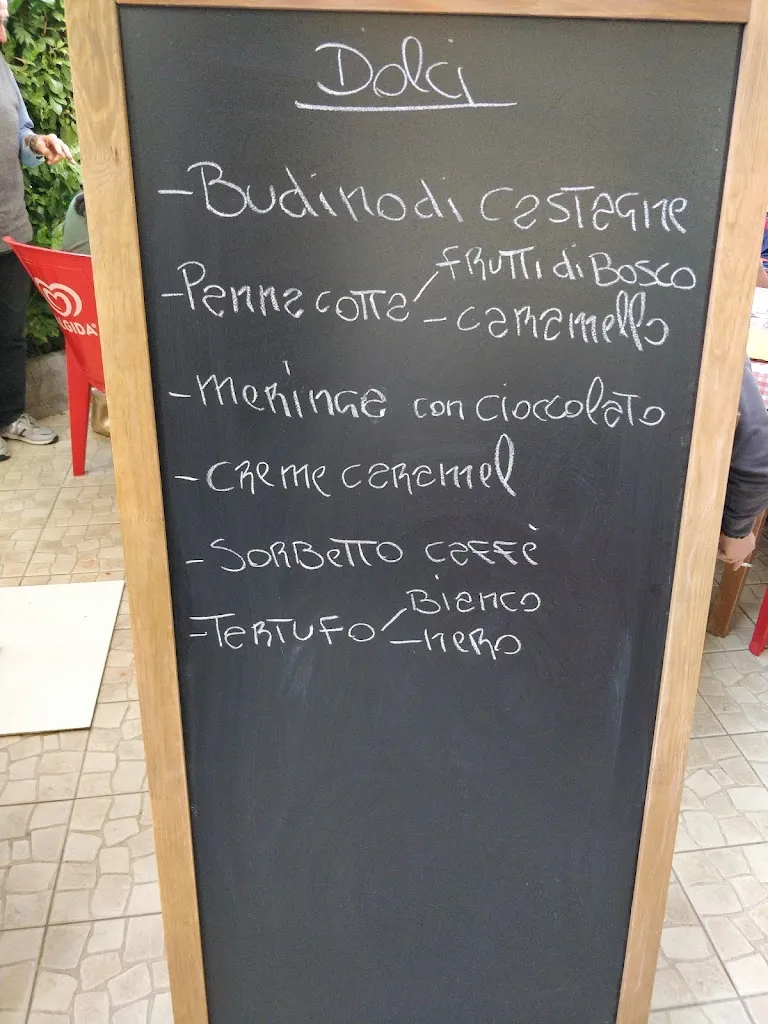 Dolci
-Budino di castagne
-Panna cotta / frutti di Bosco
- caramello
-meringa con cioccolato
-creme caramel
-Sorbetto caffè
-Tartufo / Bianco
- nero
LGIDA